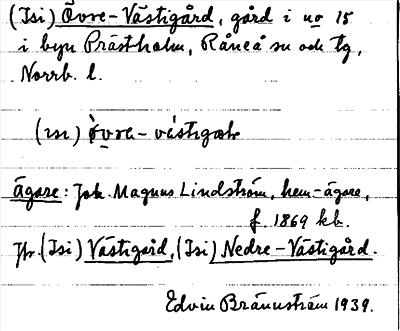 (Isi) Övre-Västigård, gård i no 15
i byn Prästholm, Råneå sn och tg,
Norrb. l.
ägare: Joh. Magnus Lindström, hem.-ägare,
f. 1869 kb.
Jfr (Isi) Västigård, (Isi) Nedre-Västigård.
Edvin Brännström 1939.